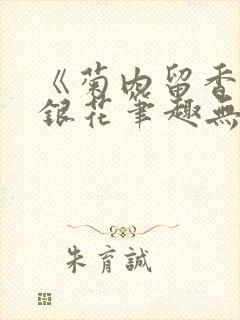 《菊内留香
銀花筆趣無
朱育誠